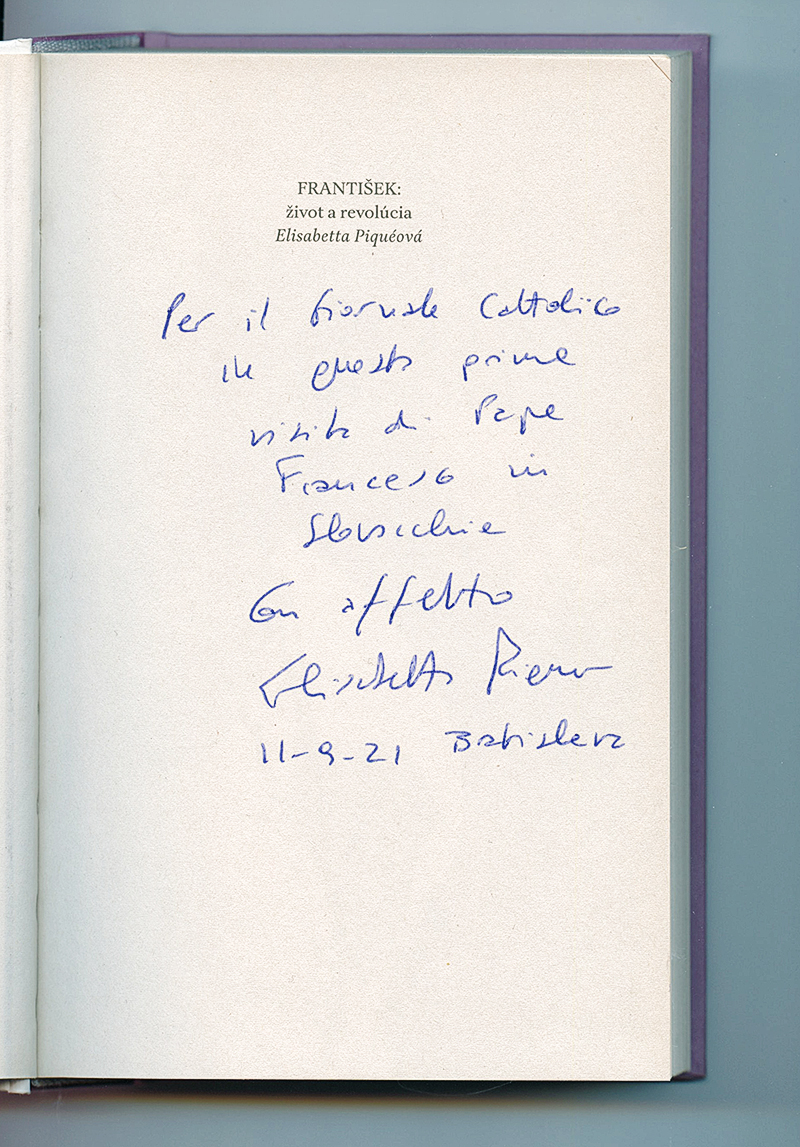 FRANTIŠEK:
život a revolúcia
Elisabetta Piquéová
Per il Giornale Cattolico
in questa prima
visita di Papa
Francesco in
Slovacchia
Con affetto
Elisabetta Piqué
11-9-21 Bratislava